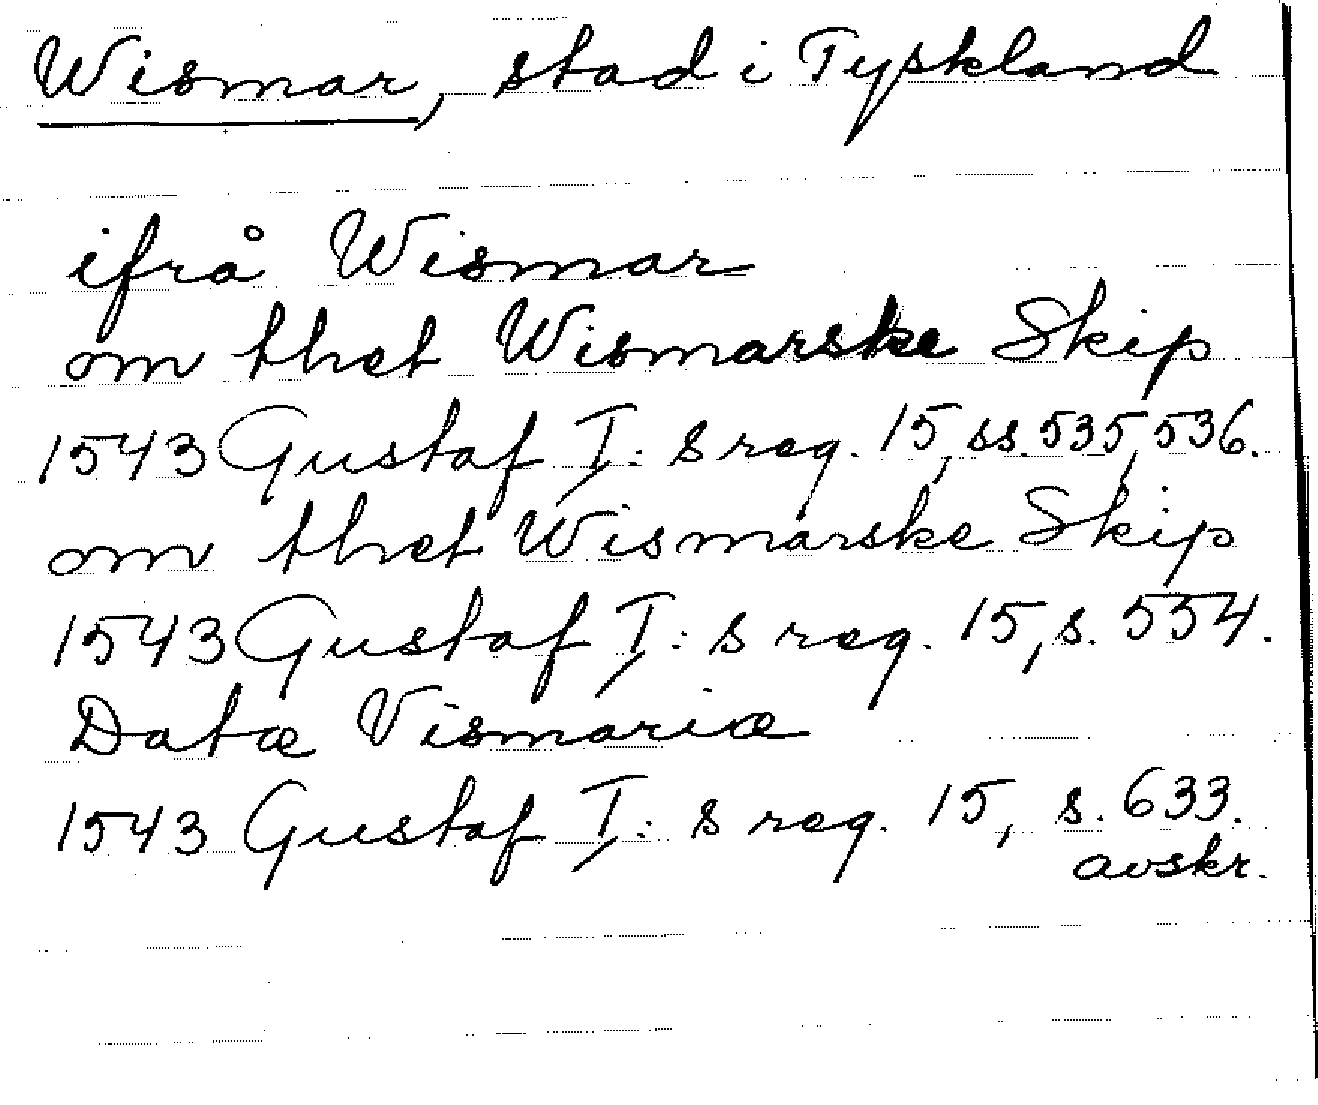 Wismar, stad i Tyskland
ifrå Wismar
om thet Wismarske Skip
1543 Gustaf I:s reg. 15, ss. 535, 536.
om thet Wismarske Skip
1543 Gustaf I:s reg. 15, s. 554.
Datæ Vismariæ
1543 Gustaf I:s reg. 15, s. 633.
avskr.